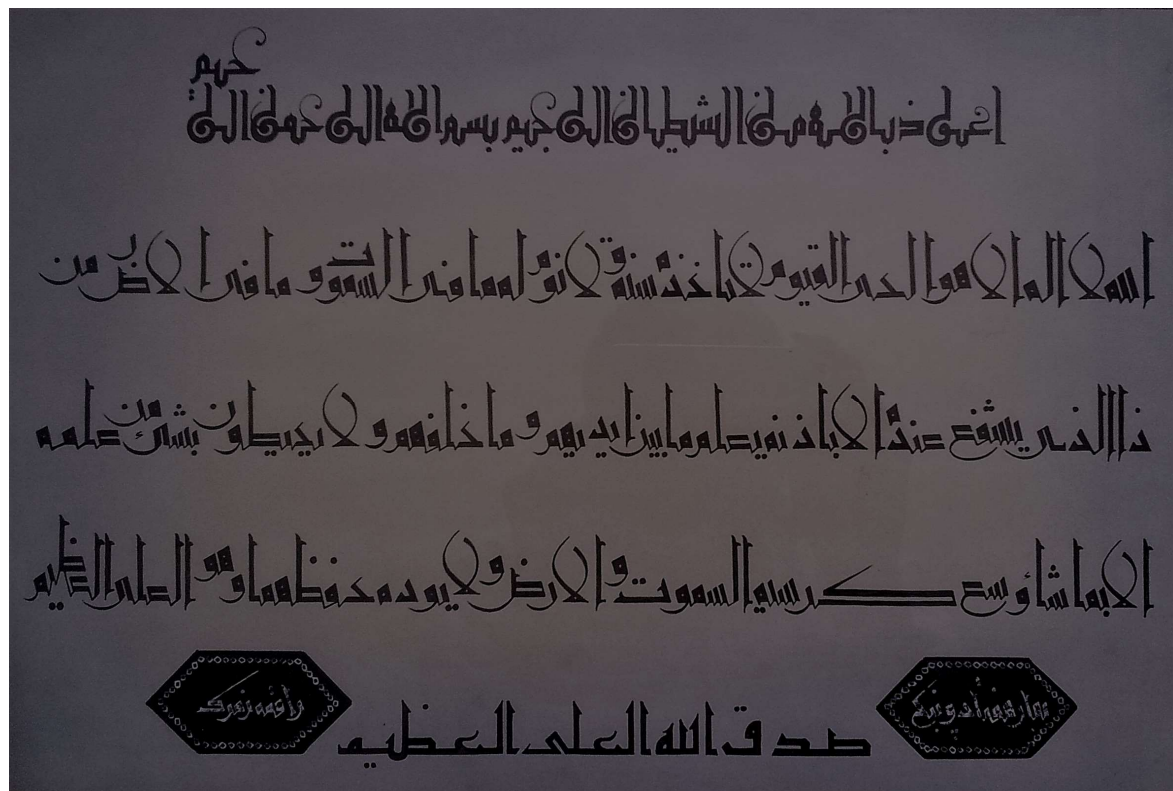 اعوذ بالله من الشيطان الرجيم بسم الله الرحمن الرحيم
الله لا اله الا هو الحي القيوم لا تاخذه سنة و لا نوم له ما في السموت و ما في الارض من
ذا الذي يشفع عنده الا باذنه يعلم ما بين ايديهم و ما خلفهم و لا يحيطون بشئ من علمه
الا بما شاؤ وسع كرسيه السموت و الارض و لا يوده حفظهما و هو العلي العظيم
صدق الله العلي العظيم